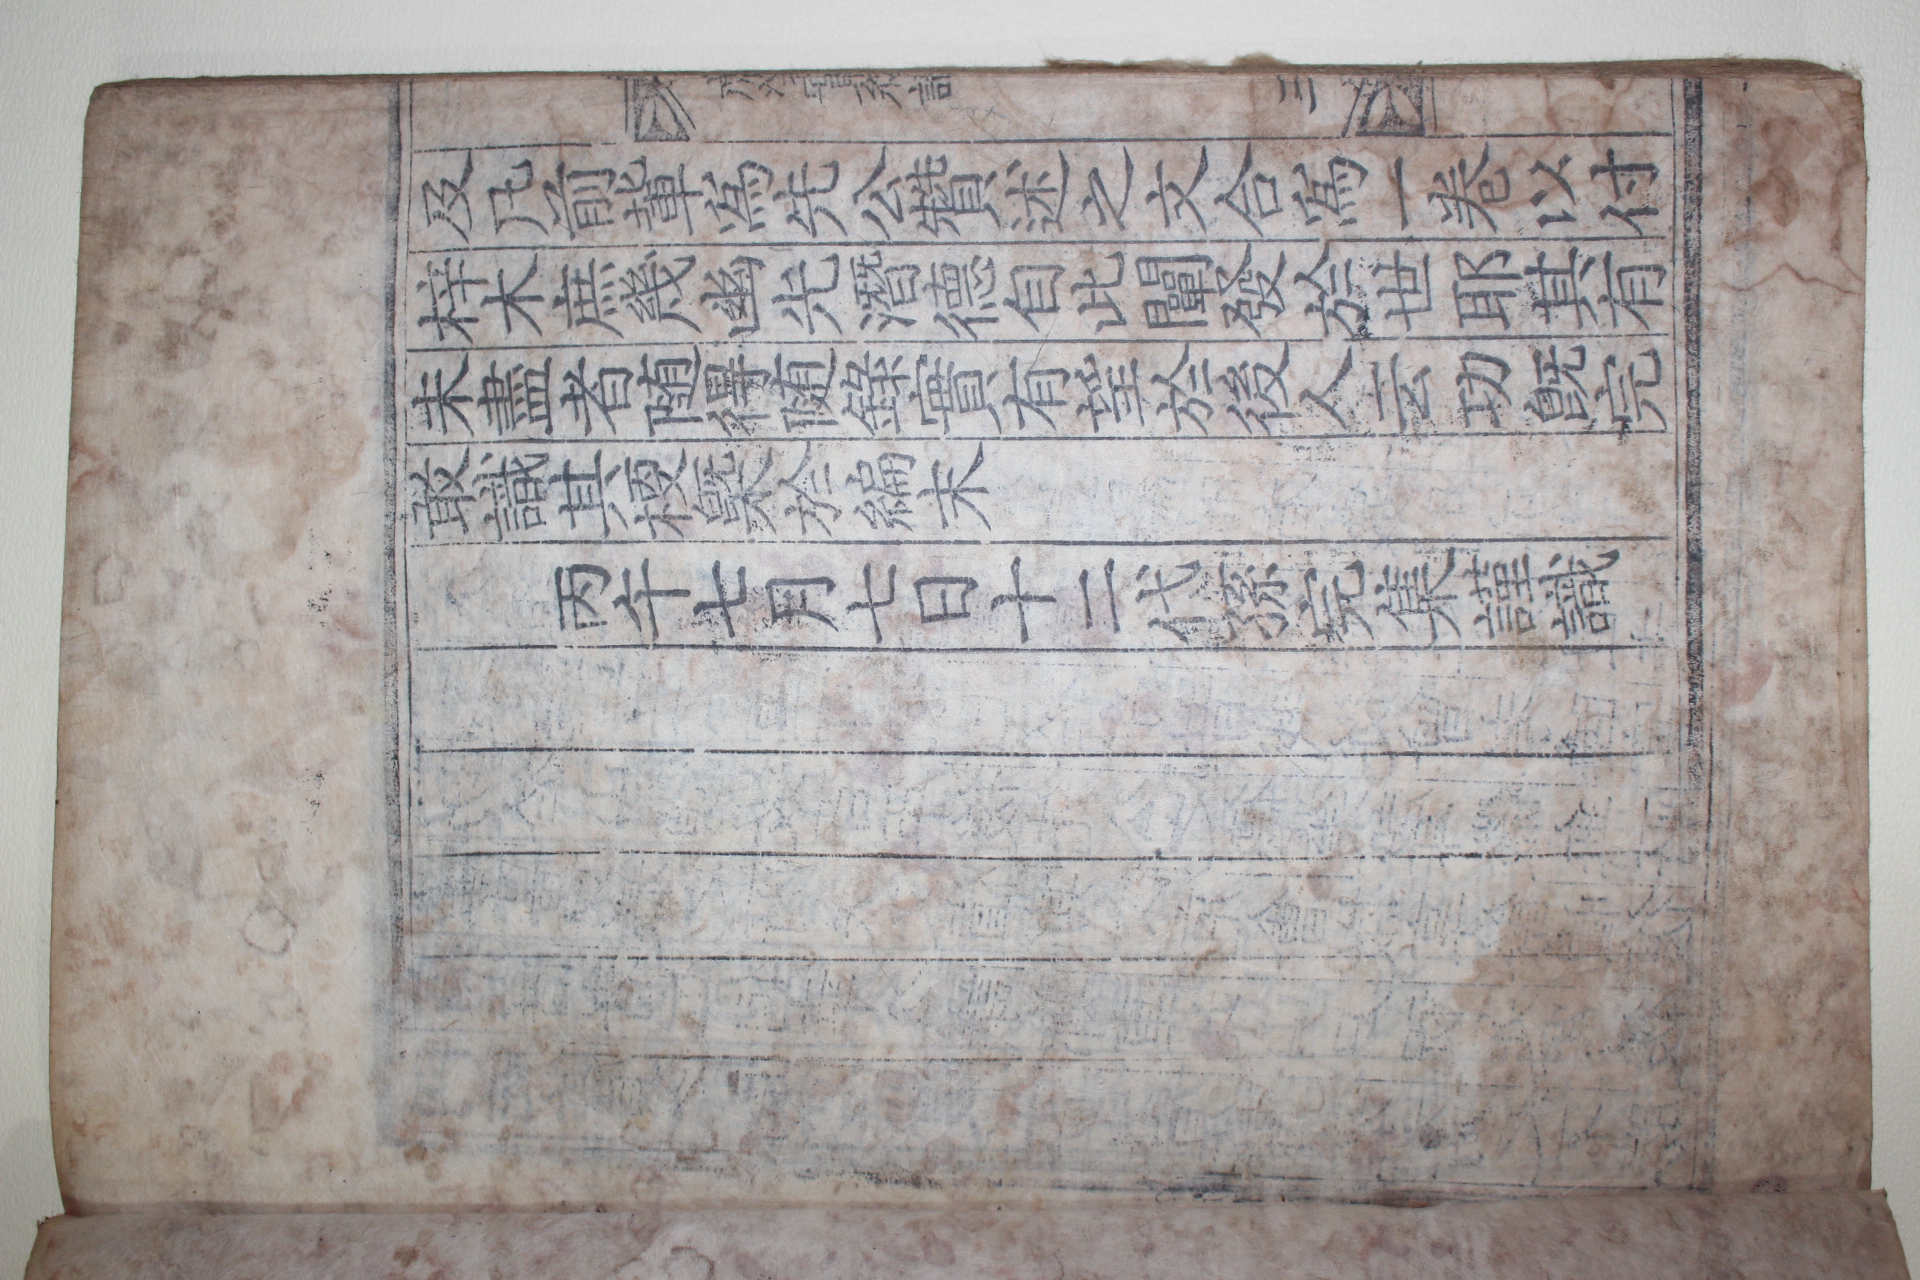 三
及凡前輩爲先公讚述之文合爲一卷以付
梓木庶幾幽光潛德自此闡發於世耶其有
未盡者隨得隨錄實有望於後人云功旣完
敢識其梗槩於編末
丙午七月七日十二代孫完集謹識